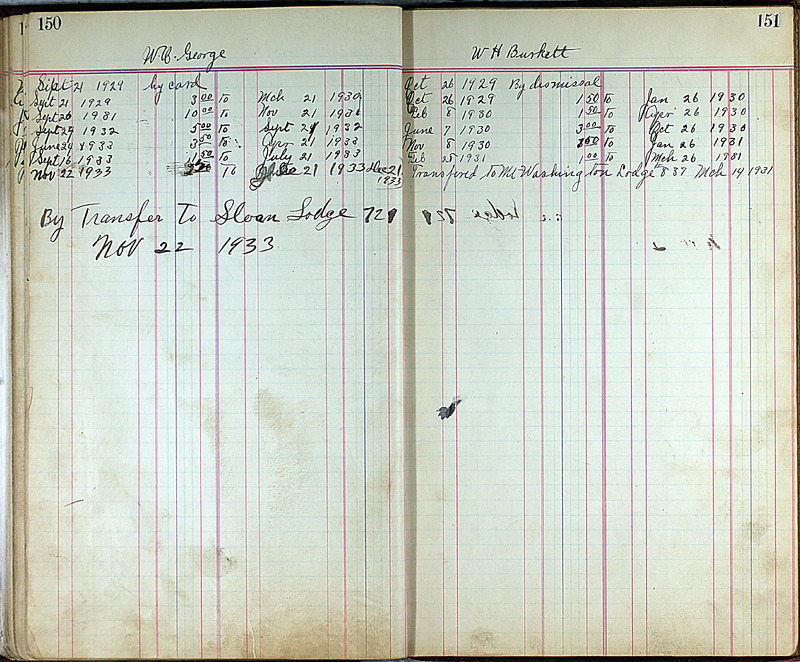 150
W C George
Sept 21 1929 by card
Sept 21 1929 3 00 To Mch 21 1930
Sept 26 1931 10 00 To Nov 21 1931
Sept 24 1932 5 00 To Sept 21 1932
June 24 1933 3 50 To Apr 21 1933
Sept 16 1933 1 50 To July 21 1933
Nov 22 1933 Dec 21 1933 Dec 21, 1933
By Transfer To Sloan Lodge 721
Nov 22 1933
151
W H Burkett
Oct 26 1929 By dismissal
Oct 26 1929 1 50 To Jan 26 1930
Feb 8 1930 1 50 To Apr 26 1930
June 7 1930 3 00 To Oct 26 1930
Nov 8 1930 1 50 To Jan 26 1931
Feb 25 1931 1 00 To Mch 26 1931
Transfered to Mt Washington Lodge 837 Mch 14 1931